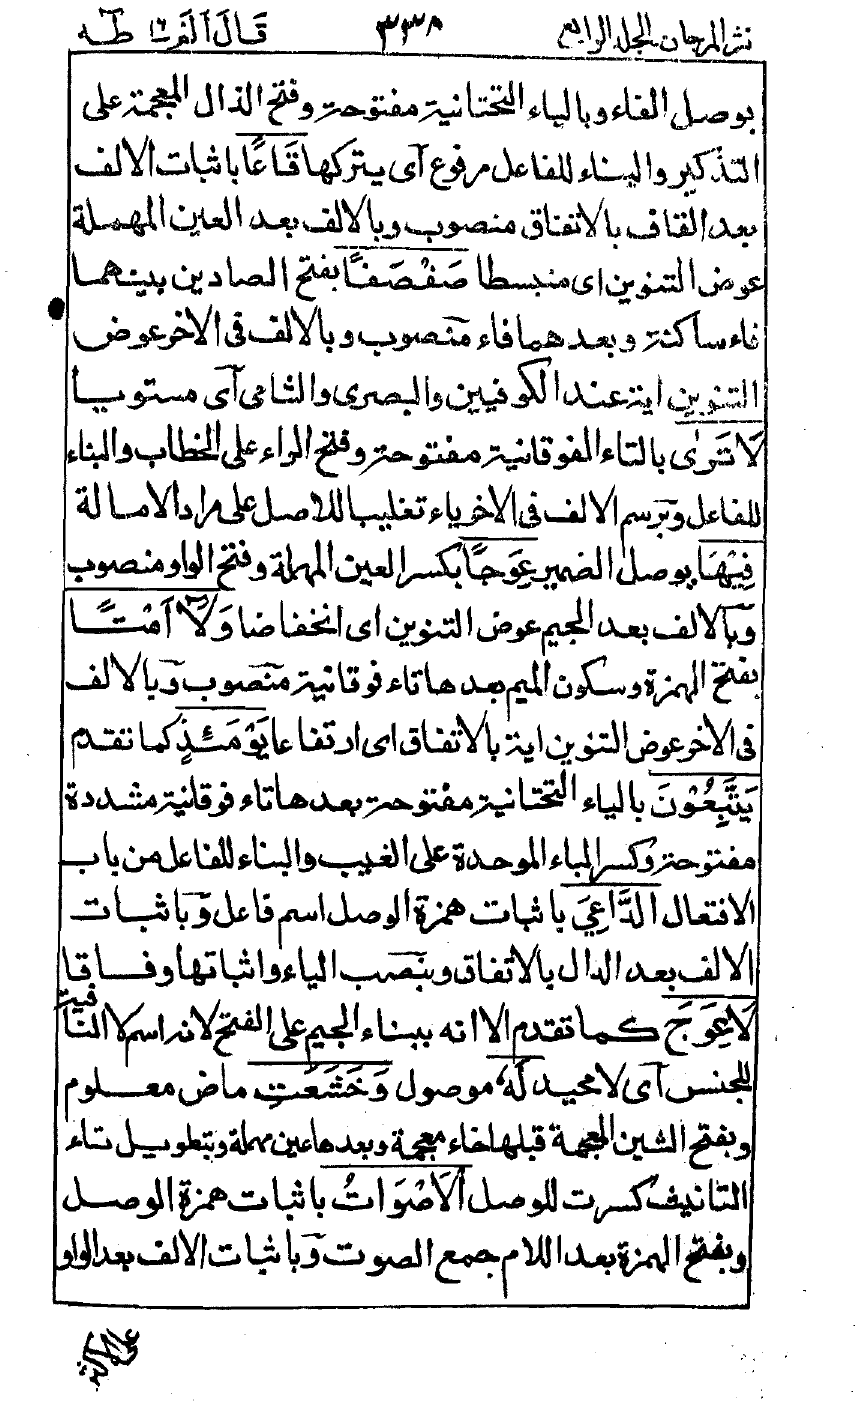 نثر المرجان الجلد الرابع ٣٣٨ قَالَ اَلَمْ ١٦ طٰهٰ
بوصل الفاء وبالياء التحتانية مفتوحة وفتح الذال المعجمة على
التذكير والبناء للفاعل مرفوع آى يتركها قَاعًا باثبات الالف
بعد القاف بالاتفاق منصوب وبالالف بعد العين المهملة
عوض التنوين اى منبسطا صَفْصَفًا بفتح الصادين بينهما
فاء ساكنة وبعدهما فاء منصوب وبالالف فى الاخر عوض
التنوين اية عند الكوفيين والبصرى والشامى آى مستويا
لَا تَرٰى بالتاء الفوقانية مفتوحة وفتح الراء على الخطاب والبناء
للفاعل وبرسم الالف فى الاخر ياء تغليبا للاصل على مراد الامالة
فِيْهَا بوصل الضمير عِوَجًا بكسر العين المهملة وفتح الواو منصوب
وبالالف بعد الجيم عوض التنوين اى انخفاضا وَلَآ اَمْتًا
بفتح الهمزة وسكون الميم بعدها تاء فوقانية منصوب وبالالف
فى الاخر عوض التنوين اية بالاتفاق اى ارتفاعا يَوْمَئِذٍ كما تقدم
يَتَّبِعُوْنَ بالياء التحتانية مفتوحة بعدها تاء فوقانية مشددة
مفتوحة وكسر الباء الموحدة على الغيب والبناء للفاعل من باب
الافتعال الدَّاعِيَ باثبات همزة الوصل اسم فاعل وباثبات
الالف بعد الدال بالاتفاق وبنصب الياء واثباتها وفاقا
لَا عِوَجَ كما تقدم الا انه ببناء الجيم على الفتح لانه اسم لا النافية
للجنس آى لا محيد لَهٗ موصول وَخَشَعَتِ ماض معلوم
وبفتح الشين المعجمة قبلها خاء معجمة وبعدها عين مهملة وبتطويل تاء
التانيث كسرت للوصل اَلْاَصْوَاتُ باثبات همزة الوصل
وبفتح الهمزة بعد اللام جمع الصوت وباثبات الالف بعد الواو